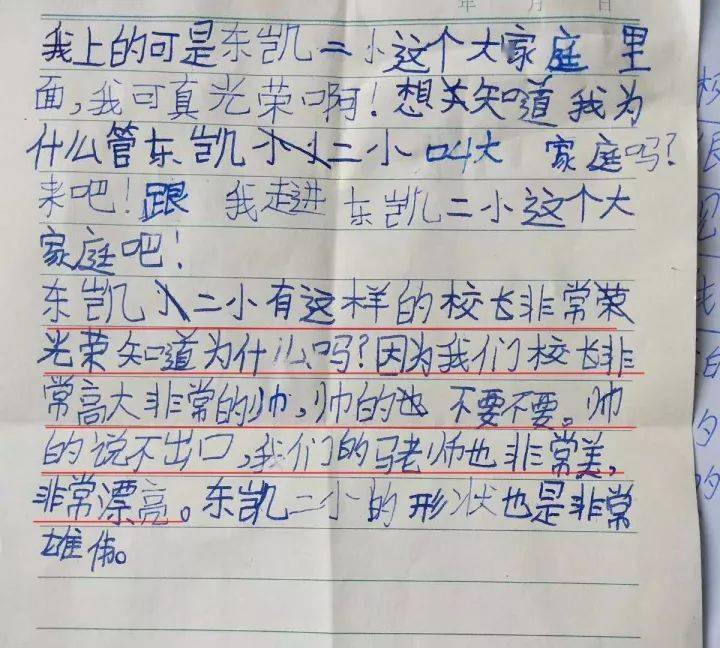 年 月 日
我上的可是东凯二小这个大家庭里
面,我可真光荣啊!想关知道我为
什么管东凯小小二小叫大 家庭吗?
来吧!跟 我走进东凯二小这个大
家庭吧!
东凯小二小有这样的校长非常荣
光荣知道为什么吗?因为我们校长非
常高大非常的帅,帅的也 不要不要。帅
的说不出口,我们的马老师也非常美,
非常漂亮。东凯二小的形状也是非常
雄伟。